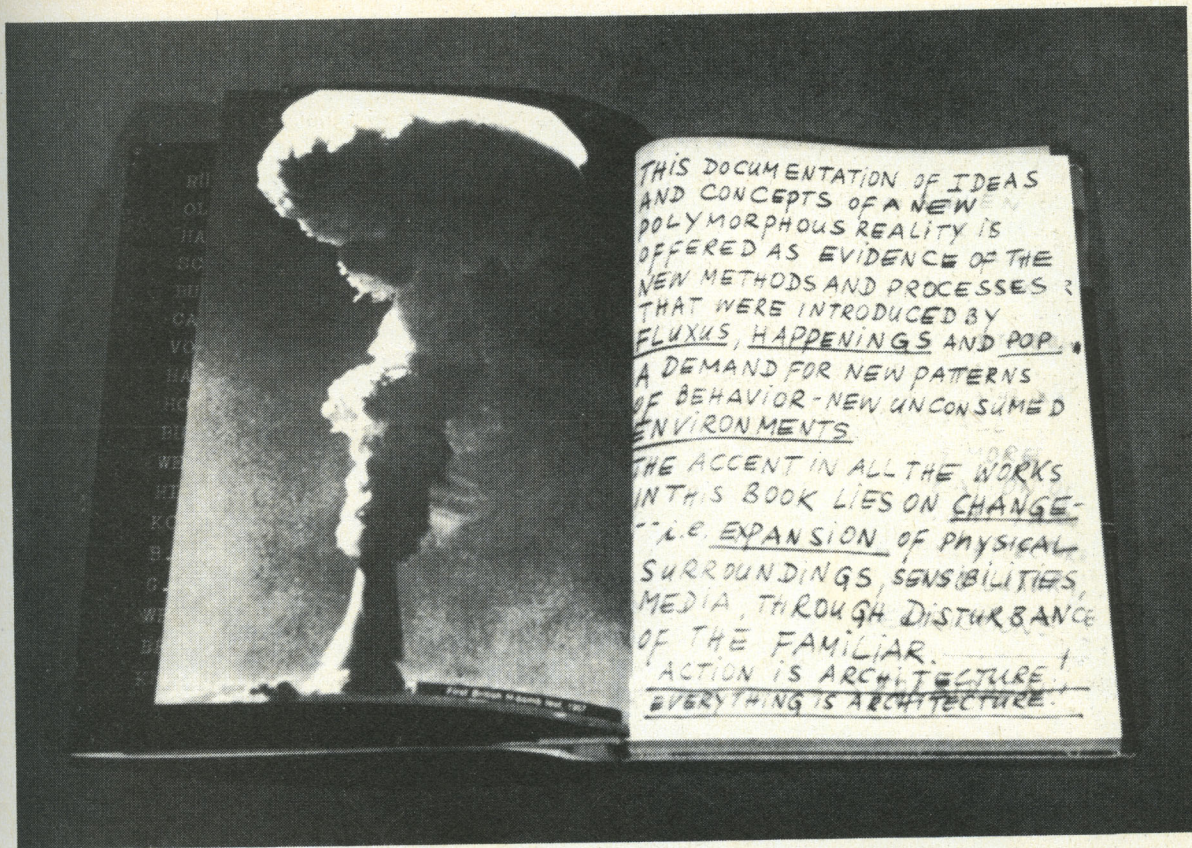 RU
OL
HA
SC
BU
CA
VO
HA
HO
WE
HI
KO
B.
G.
WE
BE
THiS DOCUMENTATiON OF IDEAS
AND CONCEPTS OF A NEW
POLYMORPHOUS REALiTY iS
OFFERED AS EVIDENCE OF THE
NEW METHODS AND PROCESSES
THAT WERE INTRODUCED BY
FLUXUS, HAPPENiNGS AND POP.
A DEMAND FOR NEW PATTERNS
OF BEHAVIOR-NEW UNCONSUMED
ENVIRONMENTS
THE ACCENT IN ALL THE WORKS
IN THiS BOOK LIES ON CHANGE-
-- i.e. EXPANSiON OF PHYSICAL
SURROUNDiNGS, SENSiBILITIES,
MEDIA, THROUGH DiSTURBANCE
OF THE FAMiLiAR.
ACTION iS ARCHiTECTURE!
EVERYTHiNG IS ARCHITECTURE.